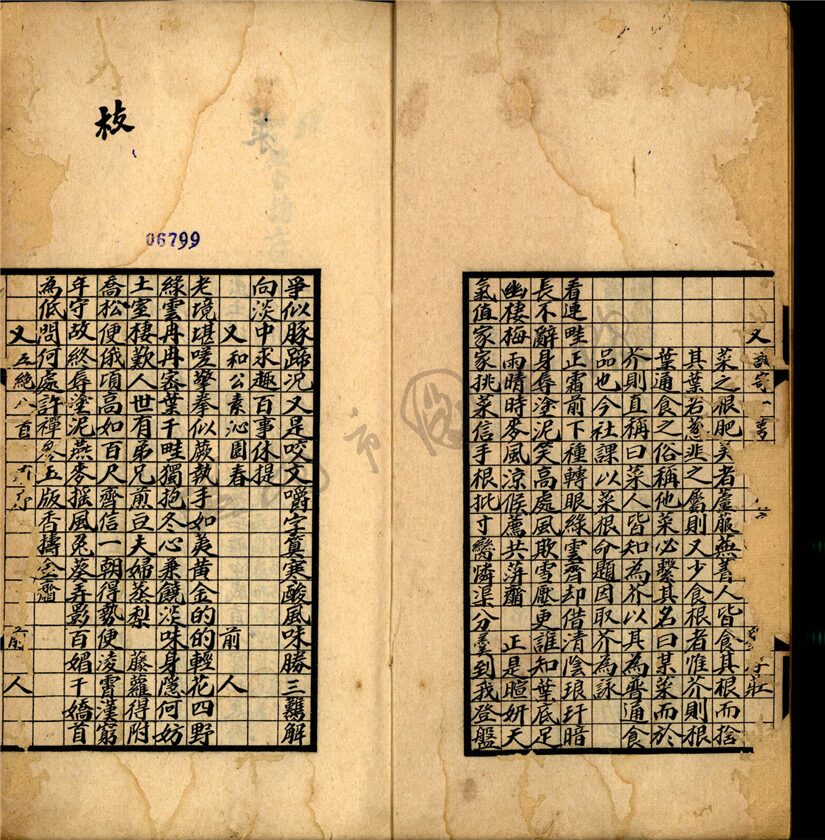 又
菜之根肥美者蘆菔蕪菁人皆食其根而捨
其葉若蔥韭之屬則又少食根者惟芥則根
葉通食之俗稱他菜必繫其名曰某菜而於
芥則直稱曰菜人皆知為芥以其為普通食
品也今社課以菜根命題因取芥為詠
看連畦正霜前下種轉眼綠雲齊却借清陰琅玕暗
長不辭身辱塗泥笑高處風欺雪壓更誰知葉底足
幽棲梅雨晴時麥風涼候薦共萍虀 正是暄妍天
氣值家家挑菜信手根批寸臠憐渠分羹到我登盤
爭似豚蹄况又是咬文嚼字真寒酸風味勝三鷄解
向淡中求趣百事休提
又 和公素沁園春 前人
老境堪嗟攣拳似蕨執手如荑黃金的的輕花四野
綠雲冉冉密葉千畦獨抱冬心兼饒淡味身隱何妨
土室棲歎人世有弟兄煎豆夫婦蒸梨 藤蘿得附
喬松便俄頃高如百尺齊信一朝得勢便凌霄漢窮
年守故終辱塗泥燕麥搖風兔葵弄影百媚千嬌首
為低問何處許禪參玉版香擣金虀
又 五絕八首 前人
枝
06799